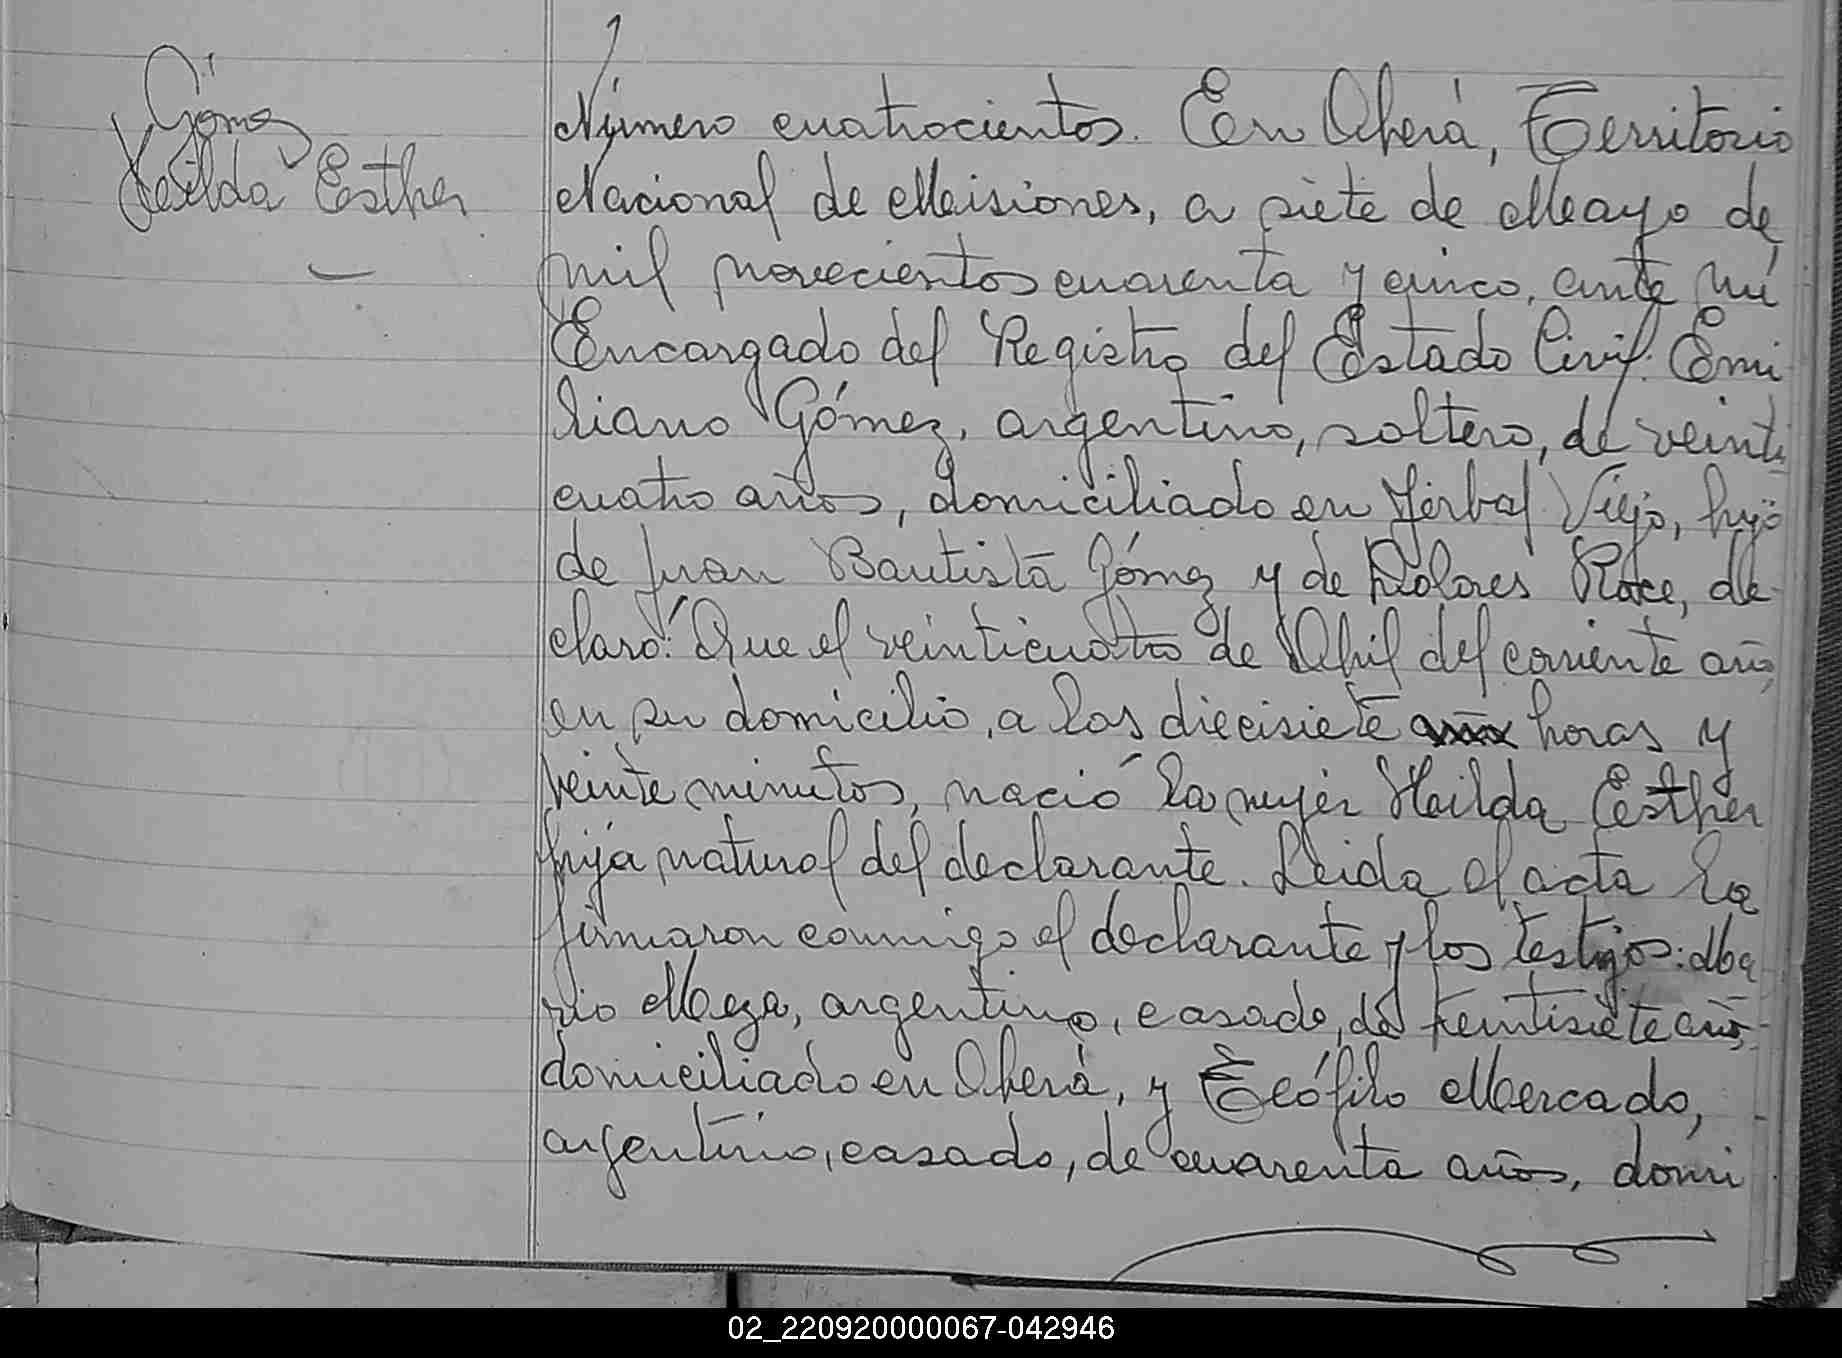 Gómez
Hilda Esther
Número cuatrocientos. En Oberá, Territorio
Nacional de Misiones, a siete de Mayo de
mil novecientos cuarenta y cinco, ante mí
Encargado del Registro del Estado Civil. Emi
liano Gómez, argentino, soltero, de veinti
cuatro años, domiciliado en Yerbal Viejo, hijo
de Juan Bautista Gómez y de Dolores, de
claró: Que el veinticuatro de Abril del corriente año,
en su domicilio, a las diecisiete horas y
veinte minutos, nació la mujer Hilda Esther
hija natural del declarante. Leida el acta la
firmaron conmigo el declarante y los testigos: Ma
rio Meza, argentino, casado, de treintisiete años,
domiciliado en Oberá, y Teófilo Mercado,
argentino, casado, de cuarenta años, domi
02_220920000067-042946